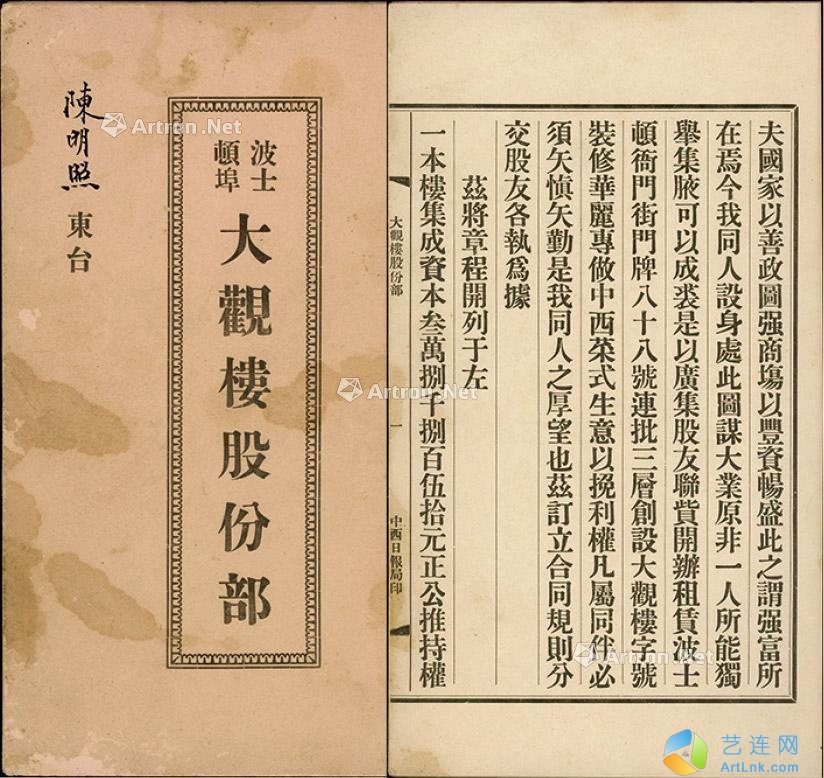 陳明照
東台
波士頓埠
大觀樓股份部
夫國家以善政圖强商塲以豐資暢盛此之謂强富所
在焉今我同人設身處此圖謀大業原非一人所能獨
舉集腋可以成裘是以廣集股友聯貲開辦租賃波士
頓衙門街門牌八十八號連批三層創設大觀樓字號
裝修華麗專做中西菜式生意以挽利權凡屬同伴必
須矢慎矢勤是我同人之厚望也茲訂立合同規則分
交股友各執爲據
茲將章程開列于左
一本樓集成資本叁萬捌千捌百伍拾元正公推持權
大觀樓股份部
一
中西日報局印
Artron.Net
Artron.Net
Artron.Net
Artron.Net
艺连网
ArtLnk.com